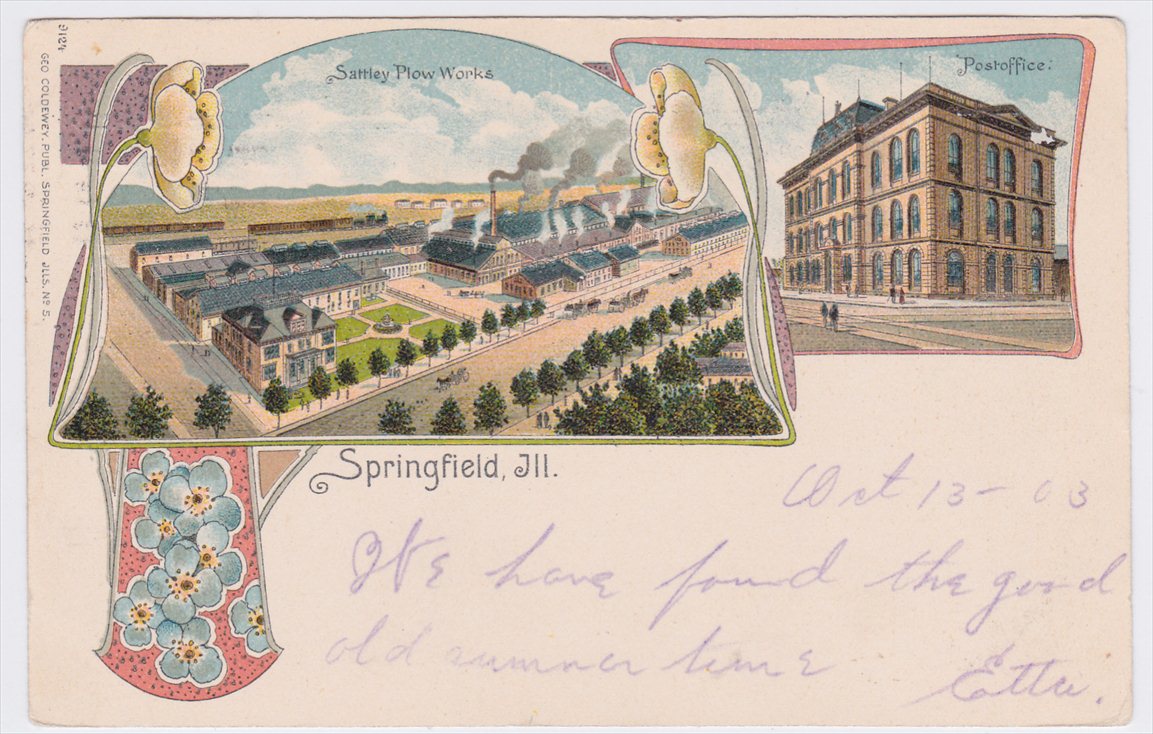 9124
GEO COLDEWEY. PUBL. SPRINGFIELD JLLS. Nº 5.
Sattley Plow Works
Postoffice.
Springfield, Jll.
Oct 13 - 03
We have found the good
old summer time
Etta.